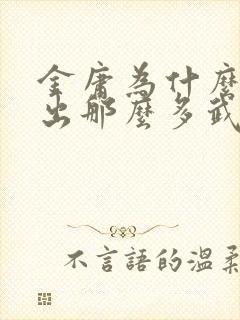 金庸為什麼
出那麼多武
不言語的溫柔